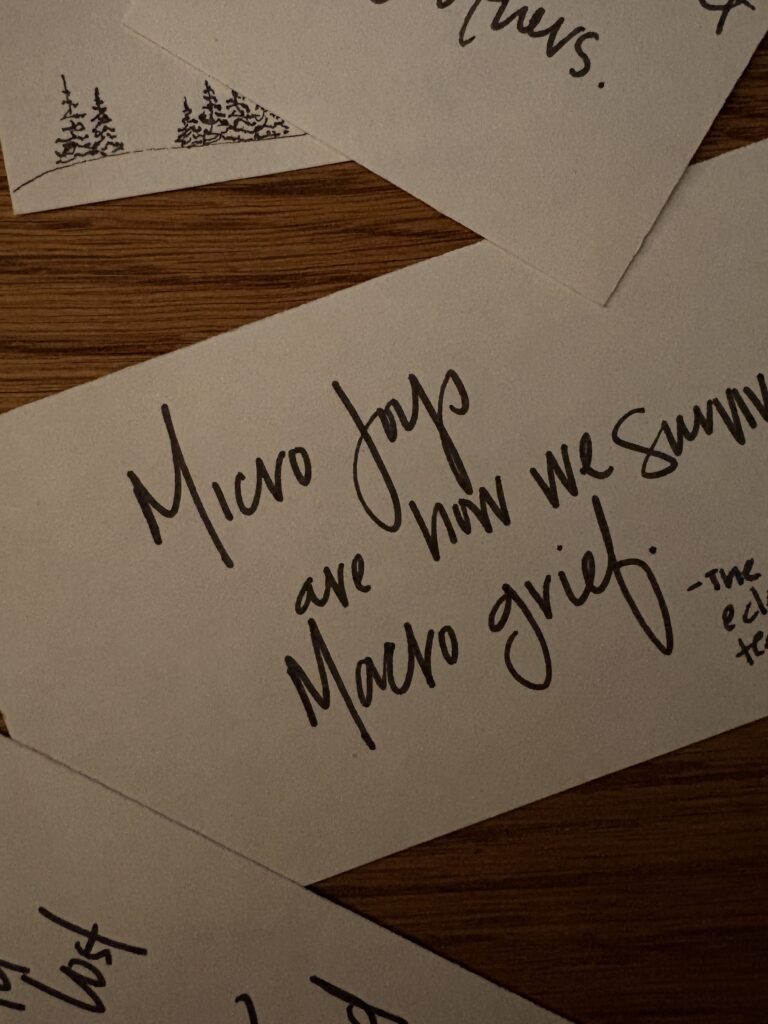 others.
Micro Joys
are how we surviv
Macro grief.
-The
ecl
tea
lost